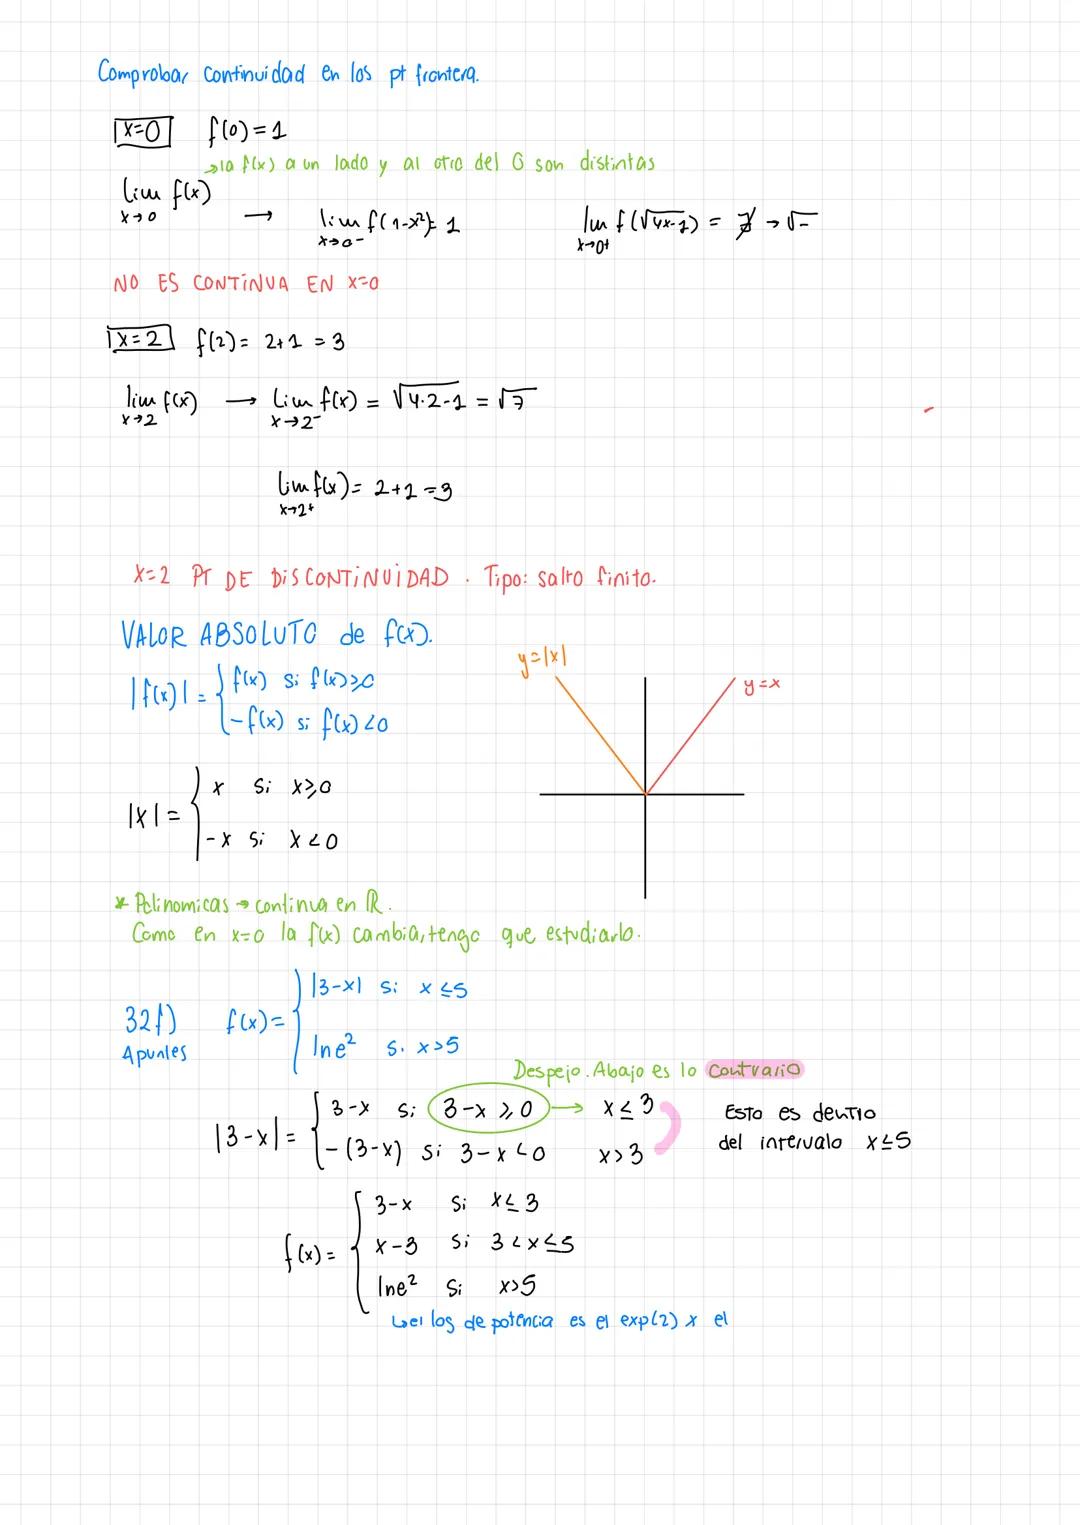 Comprobar continuidad en los pt frontera.
x=0 f(0)=1
→la f(x) a un lado y al otro del 0 son distintas
lim f(x) x→0 → lim f(1-x²)= 1 x→0- lim f(√4x-1) = ∄ → √- x→0+
NO ES CONTÍNUA EN x=0
x=2 f(2)= 2+1 = 3
lim f(x) x→2 → lim f(x) = √4·2-1 = √7 x→2-
lim f(x)= 2+1 =3 x→2+
x=2 PT DE DISCONTINUIDAD. Tipo: salto finito.
VALOR ABSOLUTO de f(x).
|f(x)| = { f(x) si f(x)≥0
-f(x) si f(x)<0
y=|x|
y=x
|x| = { x si x≥0
-x si x<0
* Polinomicas → continua en ℝ.
Como en x=0 la f(x) cambia, tengo que estudiarlo.
32f) Apuntes f(x)= { |3-x| si x≤5
ln e² si x>5
Despejo. Abajo es lo contrario
|3-x| = { 3-x si 3-x ≥ 0 → x≤3
-(3-x) si 3-x<0 x>3
Esto es dentro
del intervalo x≤5
f(x)= { 3-x si x≤3
x-3 si 3<x≤5
ln e² si x>5
↳el log de potencia es el exp(2) x el